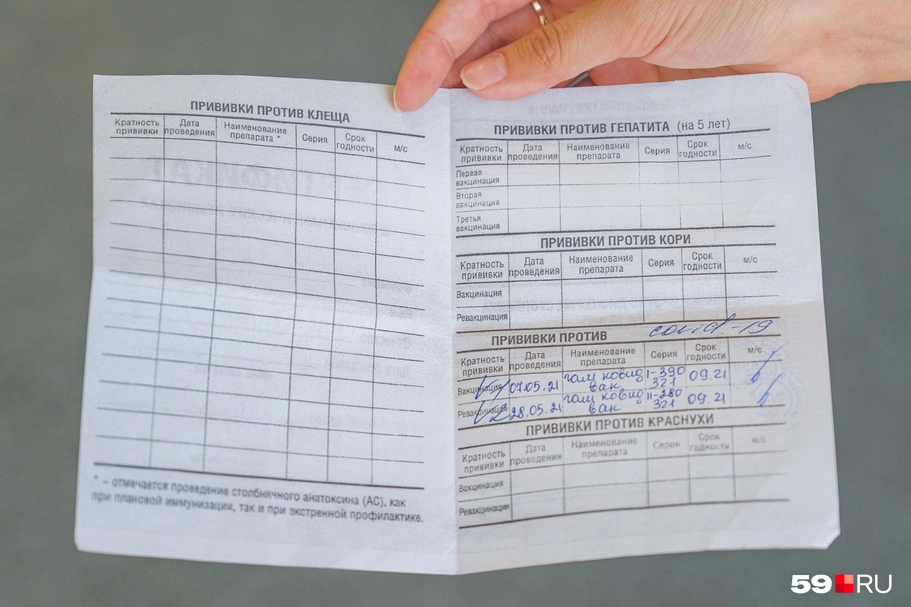 ПРИВИВКИ ПРОТИВ КЛЕЩА
Кратность прививки Дата проведения Наименование препарата * Серия Срок годности м/с
* – отмечается проведение столбнячного анатоксина (АС), как
при плановой иммунизации, так и при экстренной профилактике.
ПРИВИВКИ ПРОТИВ ГЕПАТИТА (на 5 лет)
Кратность прививки Дата проведения Наименование препарата Серия Срок годности м/с
Первая вакцинация
Вторая вакцинация
Третья вакцинация
ПРИВИВКИ ПРОТИВ КОРИ
Кратность прививки Дата проведения Наименование препарата Серия Срок годности м/с
Вакцинация
Ревакцинация
ПРИВИВКИ ПРОТИВ covid-19
Кратность прививки Дата проведения Наименование препарата Серия Срок годности м/с
Вакцинация V1 07.05.21 гам ковид вак I-390 321 09.21
Ревакцинация V2 28.05.21 гам ковид вак II-280 321 09.21
ПРИВИВКИ ПРОТИВ КРАСНУХИ
Кратность прививки Дата проведения Наименование препарата Серия Срок годности м/с
Вакцинация
Ревакцинация
59 RU